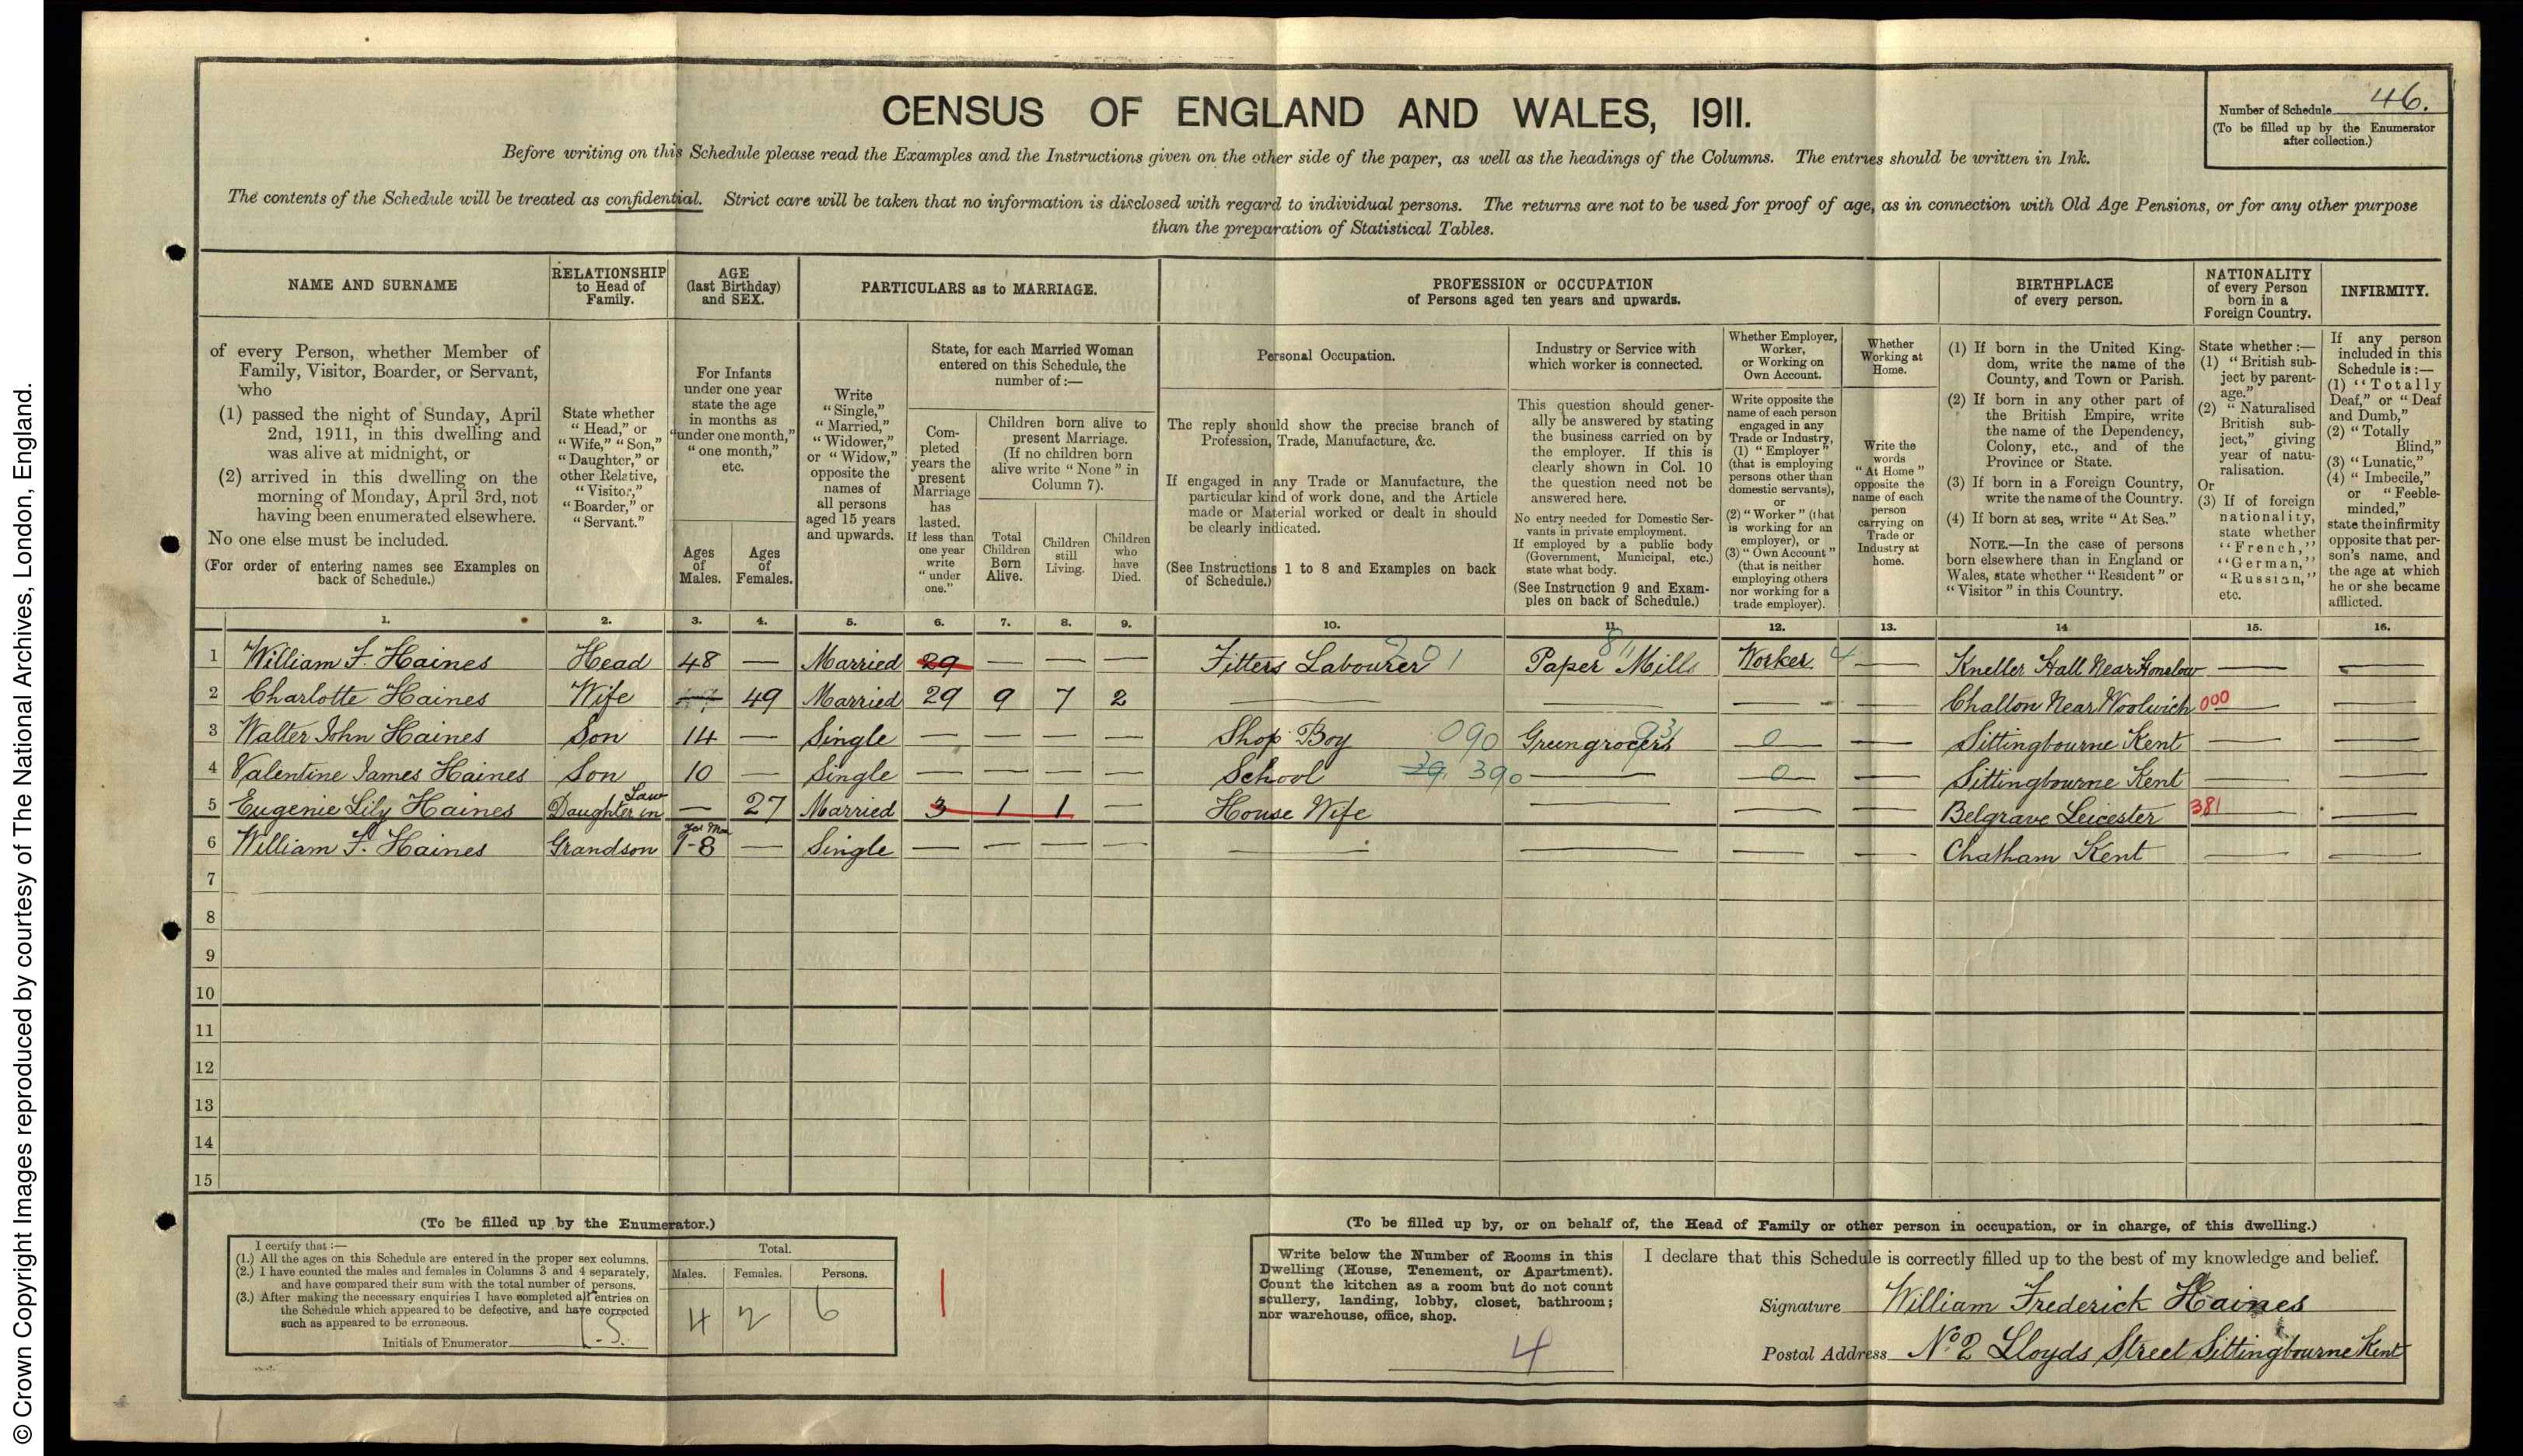 © Crown Copyright Images reproduced by courtesy of The National Archives, London, England.
CENSUS OF ENGLAND AND WALES, 1911.
Number of Schedule 46.
(To be filled up by the Enumerator
after collection.)
Before writing on this Schedule please read the Examples and the Instructions given on the other side of the paper, as well as the headings of the Columns. The entries should be written in Ink.
The contents of the Schedule will be treated as confidential. Strict care will be taken that no information is disclosed with regard to individual persons. The returns are not to be used for proof of age, as in connection with Old Age Pensions, or for any other purpose
than the preparation of Statistical Tables.
NAME AND SURNAME
of every Person, whether Member of
Family, Visitor, Boarder, or Servant,
who
(1) passed the night of Sunday, April
2nd, 1911, in this dwelling and
was alive at midnight, or
(2) arrived in this dwelling on the
morning of Monday, April 3rd, not
having been enumerated elsewhere.
No one else must be included.
(For order of entering names see Examples on
back of Schedule.)
RELATIONSHIP
to Head of
Family.
State whether
"Head," or
"Wife," "Son,"
"Daughter," or
other Relative,
"Visitor,"
"Boarder," or
"Servant."
AGE
(last Birthday)
and SEX.
For Infants
under one year
state the age
in months as
"under one month,"
"one month,"
etc.
Ages
of
Males.
Ages
of
Females.
PARTICULARS as to MARRIAGE.
Write
"Single,"
"Married,"
"Widower,"
or "Widow,"
opposite the
names of
all persons
aged 15 years
and upwards.
State, for each Married Woman
entered on this Schedule, the
number of :—
Com-
pleted
years the
present
Marriage
has
lasted.
If less than
one year
write
"under
one."
Children born alive to
present Marriage.
(If no children born
alive write "None" in
Column 7).
Total
Children
Born
Alive.
Children
still
Living.
Children
who
have
Died.
PROFESSION or OCCUPATION
of Persons aged ten years and upwards.
Personal Occupation.
The reply should show the precise branch of
Profession, Trade, Manufacture, &c.
If engaged in any Trade or Manufacture, the
particular kind of work done, and the Article
made or Material worked or dealt in should
be clearly indicated.
(See Instructions 1 to 8 and Examples on back
of Schedule.)
Industry or Service with
which worker is connected.
This question should gener-
ally be answered by stating
the business carried on by
the employer. If this is
clearly shown in Col. 10
the question need not be
answered here.
No entry needed for Domestic Ser-
vants in private employment.
If employed by a public body
(Government, Municipal, etc.)
state what body.
(See Instruction 9 and Exam-
ples on back of Schedule.)
Whether Employer,
Worker,
or Working on
Own Account.
Write opposite the
name of each person
engaged in any
Trade or Industry,
(1) "Employer"
(that is employing
persons other than
domestic servants),
or
(2) "Worker" (that
is working for an
employer), or
(3) "Own Account"
(that is neither
employing others
nor working for a
trade employer).
Whether
Working at
Home.
Write the
words
"At Home"
opposite the
name of each
person
carrying on
Trade or
Industry at
home.
BIRTHPLACE
of every person.
(1) If born in the United King-
dom, write the name of the
County, and Town or Parish.
(2) If born in any other part of
the British Empire, write
the name of the Dependency,
Colony, etc., and of the
Province or State.
(3) If born in a Foreign Country,
write the name of the Country.
(4) If born at sea, write "At Sea."
NOTE.—In the case of persons
born elsewhere than in England or
Wales, state whether "Resident" or
"Visitor" in this Country.
NATIONALITY
of every Person
born in a
Foreign Country.
State whether :—
(1) "British sub-
ject by parent-
age."
(2) "Naturalised
British sub-
ject," giving
year of natu-
ralisation.
Or
(3) If of foreign
nationality,
state whether
"French,"
"German,"
"Russian,"
etc.
INFIRMITY.
If any person
included in this
Schedule is :—
(1) "Totally
Deaf," or "Deaf
and Dumb,"
(2) "Totally
Blind,"
(3) "Lunatic,"
(4) "Imbecile,"
or "Feeble-
minded,"
state the infirmity
opposite that per-
son's name, and
the age at which
he or she became
afflicted.
1. 2. 3. 4. 5. 6. 7. 8. 9. 10. 11. 12. 13. 14 15. 16.
1 William F. Haines Head 48 — Married 29 — — — Fitters Labourer 201 Paper Mills 81 Worker 4 — Kneller Hall Near Honslow — —
2 Charlotte Haines Wife 49 Married 29 9 7 2 — — — — Chalton Near Woolwich 000 — —
3 Walter John Haines Son 14 — Single — — — — Shop Boy 090 Greengrocers 931 0 — Sittingbourne Kent — —
4 Valentine James Haines Son 10 — Single — — — — School 29 390 — 0 — Sittingbourne Kent — —
5 Eugenie Lily Haines Daughter in Law — 27 Married 3 1 1 — House Wife — — — Belgrave Leicester 381 — —
6 William F. Haines Grandson 1-8 — Single — — — — — — — — Chatham Kent — —
7
8
9
10
11
12
13
14
15
(To be filled up by the Enumerator.)
I certify that :—
(1.) All the ages on this Schedule are entered in the proper sex columns.
(2.) I have counted the males and females in Columns 3 and 4 separately,
and have compared their sum with the total number of persons.
(3.) After making the necessary enquiries I have completed all entries on
the Schedule which appeared to be defective, and have corrected
such as appeared to be erroneous.
Initials of Enumerator
Total.
Males. Females. Persons.
4 2 6
(To be filled up by, or on behalf of, the Head of Family or other person in occupation, or in charge, of this dwelling.)
Write below the Number of Rooms in this
Dwelling (House, Tenement, or Apartment).
Count the kitchen as a room but do not count
scullery, landing, lobby, closet, bathroom;
nor warehouse, office, shop.
4
I declare that this Schedule is correctly filled up to the best of my knowledge and belief.
Signature William Frederick Haines
Postal Address No 2 Lloyds Street Sittingbourne Kent